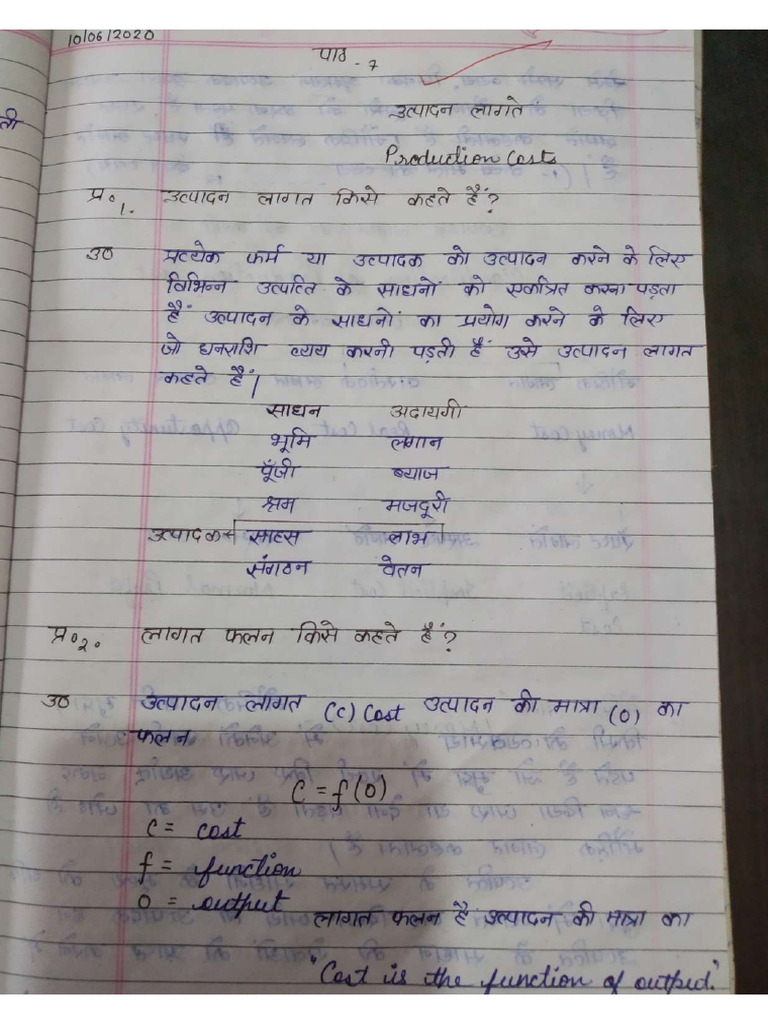 10/06/2020
पाठ - 7
उत्पादन लागते
Production Costs
प्र०1. उत्पादन लागत किसे कहते हैं?
उ० प्रत्येक फर्म या उत्पादक को उत्पादन करने के लिए
विभिन्न उत्पत्ति के साधनों को एकत्रित करना पड़ता
हैं उत्पादन के साधनों का प्रयोग करने के लिए
जो धनराशि व्यय करनी पड़ती हैं उसे उत्पादन लागत
कहते हैं।
साधन अदायगी
भूमि लगान
पूँजी ब्याज
श्रम मजदूरी
उत्पादक साहस लाभ
संगठन वेतन
प्र०2. लागत फलन किसे कहते हैं?
उ० उत्पादन लागत (C) Cost उत्पादन की मात्रा (O) का
फलन
C = f(O)
C = cost
f = function
O = output
लागत फलन है उत्पादन की मात्रा का
"Cost is the function of output."